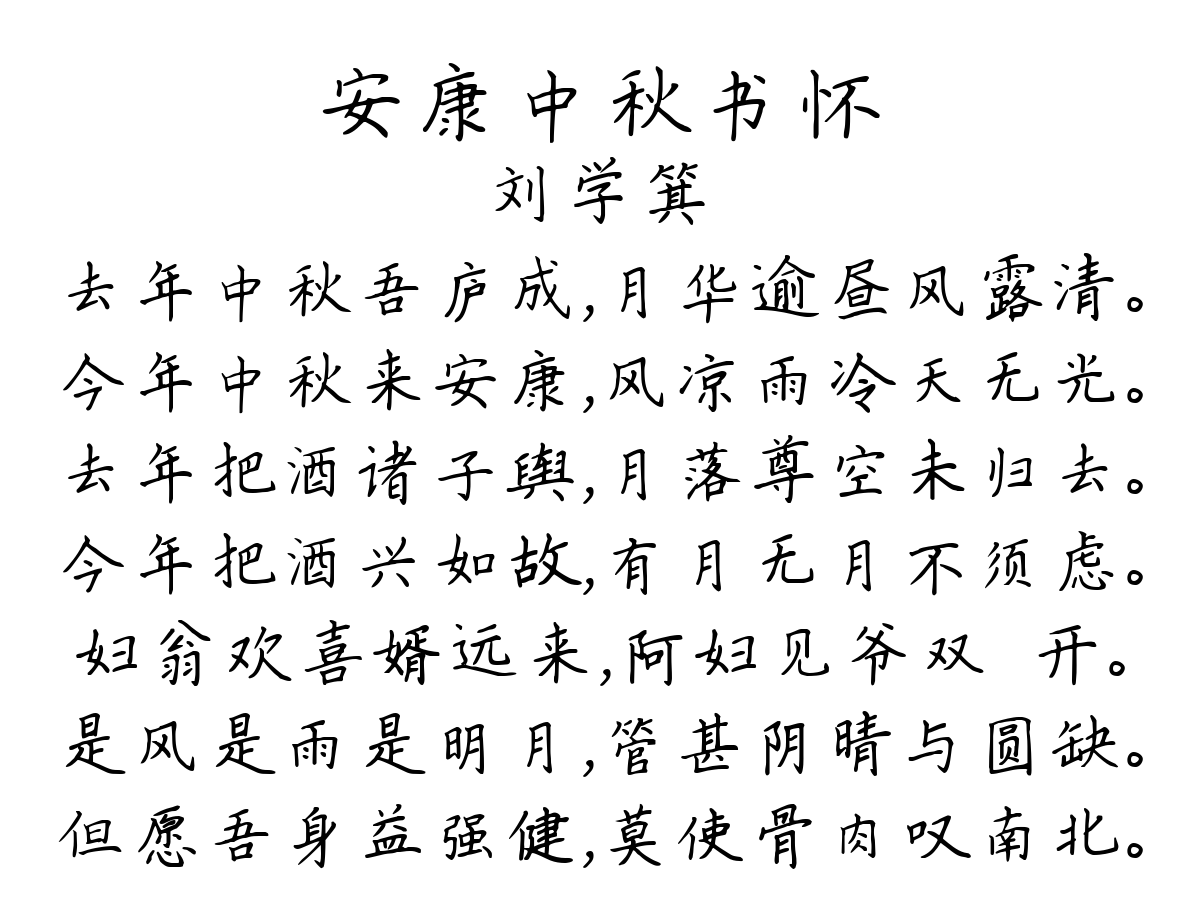 安康中秋书怀
刘学箕
去年中秋吾庐成,月华逾昼风露清。
今年中秋来安康,风凉雨冷天无光。
去年把酒诸子舆,月落尊空未归去。
今年把酒兴如故,有月无月不须虑。
妇翁欢喜婿远来,阿妇见爷双 开。
是风是雨是明月,管甚阴晴与圆缺。
但愿吾身益强健,莫使骨肉叹南北。